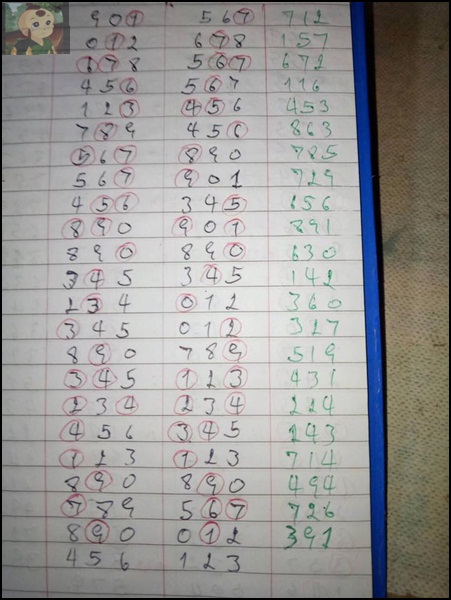 901 567 712
012 678 157
678 567 672
456 567 116
123 456 453
789 456 863
567 890 785
567 901 729
456 345 656
890 901 891
890 890 630
345 345 142
234 012 360
345 012 327
890 789 519
345 123 431
234 234 224
456 345 243
123 123 714
890 890 494
789 567 726
890 012 391
456 123